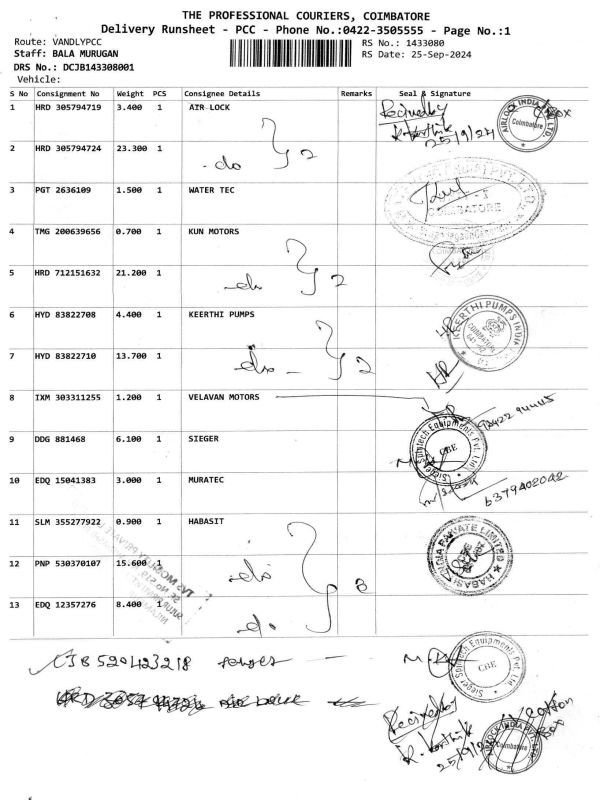 THE PROFESSIONAL COURIERS, COIMBATORE
Delivery Runsheet - PCC - Phone No.:0422-3505555 - Page No.:1
Route: VANDLYPCC
RS No.: 1433080
Staff: BALA MURUGAN
RS Date: 25-Sep-2024
DRS No.: DCJB143308001
Vehicle:
S No Consignment No Weight PCS Consignee Details Remarks Seal & Signature
1 HRD 305794719 3.400 1 AIR LOCK
Recivedby
25/9/24
AIRLOCK INDIA PVT. LTD.
Coimbatore
2 HRD 305794724 23.300 1 -do 2
3 PGT 2636109 1.500 1 WATER TEC
COIMBATORE
4 TMG 200639656 0.700 1 KUN MOTORS
5 HRD 712151632 21.200 1 -do 2
6 HYD 83822708 4.400 1 KEERTHI PUMPS
KEERTHI PUMPS INDIA
COIMBATORE
7 HYD 83822710 13.700 1 -do - 2
8 IXM 303311255 1.200 1 VELAVAN MOTORS
9 DDG 881468 6.100 1 SIEGER
Sieger Spintech Equipments Pvt. Ltd.
CBE
10 EDQ 15041383 3.000 1 MURATEC
6379402042
11 SLM 355277922 0.900 1 HABASIT
HABASIT INDIA PRIVATE LIMITED
12 PNP 530370107 15.600 1 -do 3
13 EDQ 12357276 8.400 1 -do
CJB 520423218
Sieger Spintech Equipments Pvt. Ltd.
CBE
Recivedby
AIRLOCK INDIA PVT. LTD.
Coimbatore